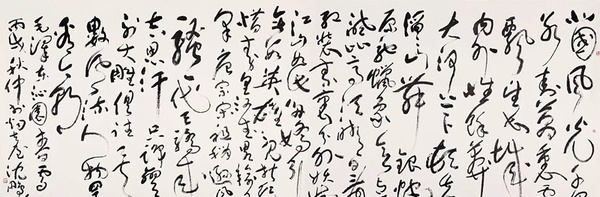 北國風光千里
冰封萬里雪
飘望长城
内外惟餘莽莽
大河上下顿失
滔滔山舞銀蛇
原驰蜡象欲与天公
试比高须晴日看
红装素裹分外妖娆
江山如此多娇引
无数英雄竞折腰
惜秦皇汉武略输文
采唐宗宋祖稍逊风
骚一代天骄成
吉思汗只识弯弓
射大雕俱往矣
数风流人物还
看今朝
毛泽东沁园春雪
丙戌秋仲 沈鹏